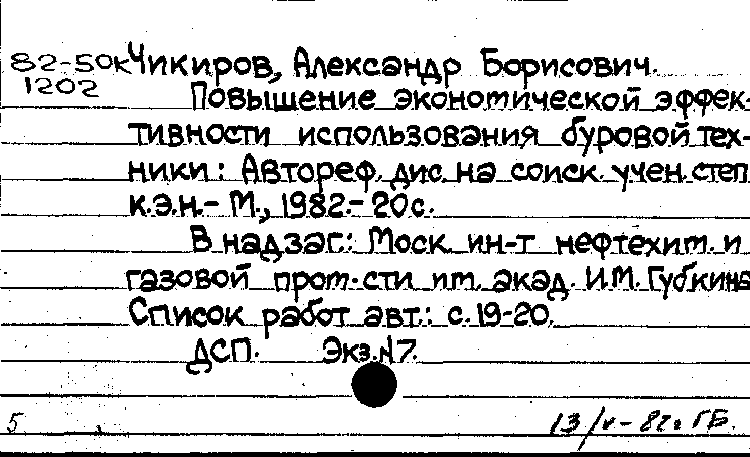 82-50к Чикиров, Александр Борисович.
1202
Повышение экономической эффек-
тивности использования буровой тех-
ники: Автореф. дис. на соиск. учен. степ.
к.э.н. - М., 1982. - 20 с.
В надзаг.: Моск. ин-т нефтехим. и
газовой пром-сти им. акад. И.М. Губкина
Список работ авт.: с. 19-20.
ДСП. Экз. N7.
5 13/V-82г. ГБ.